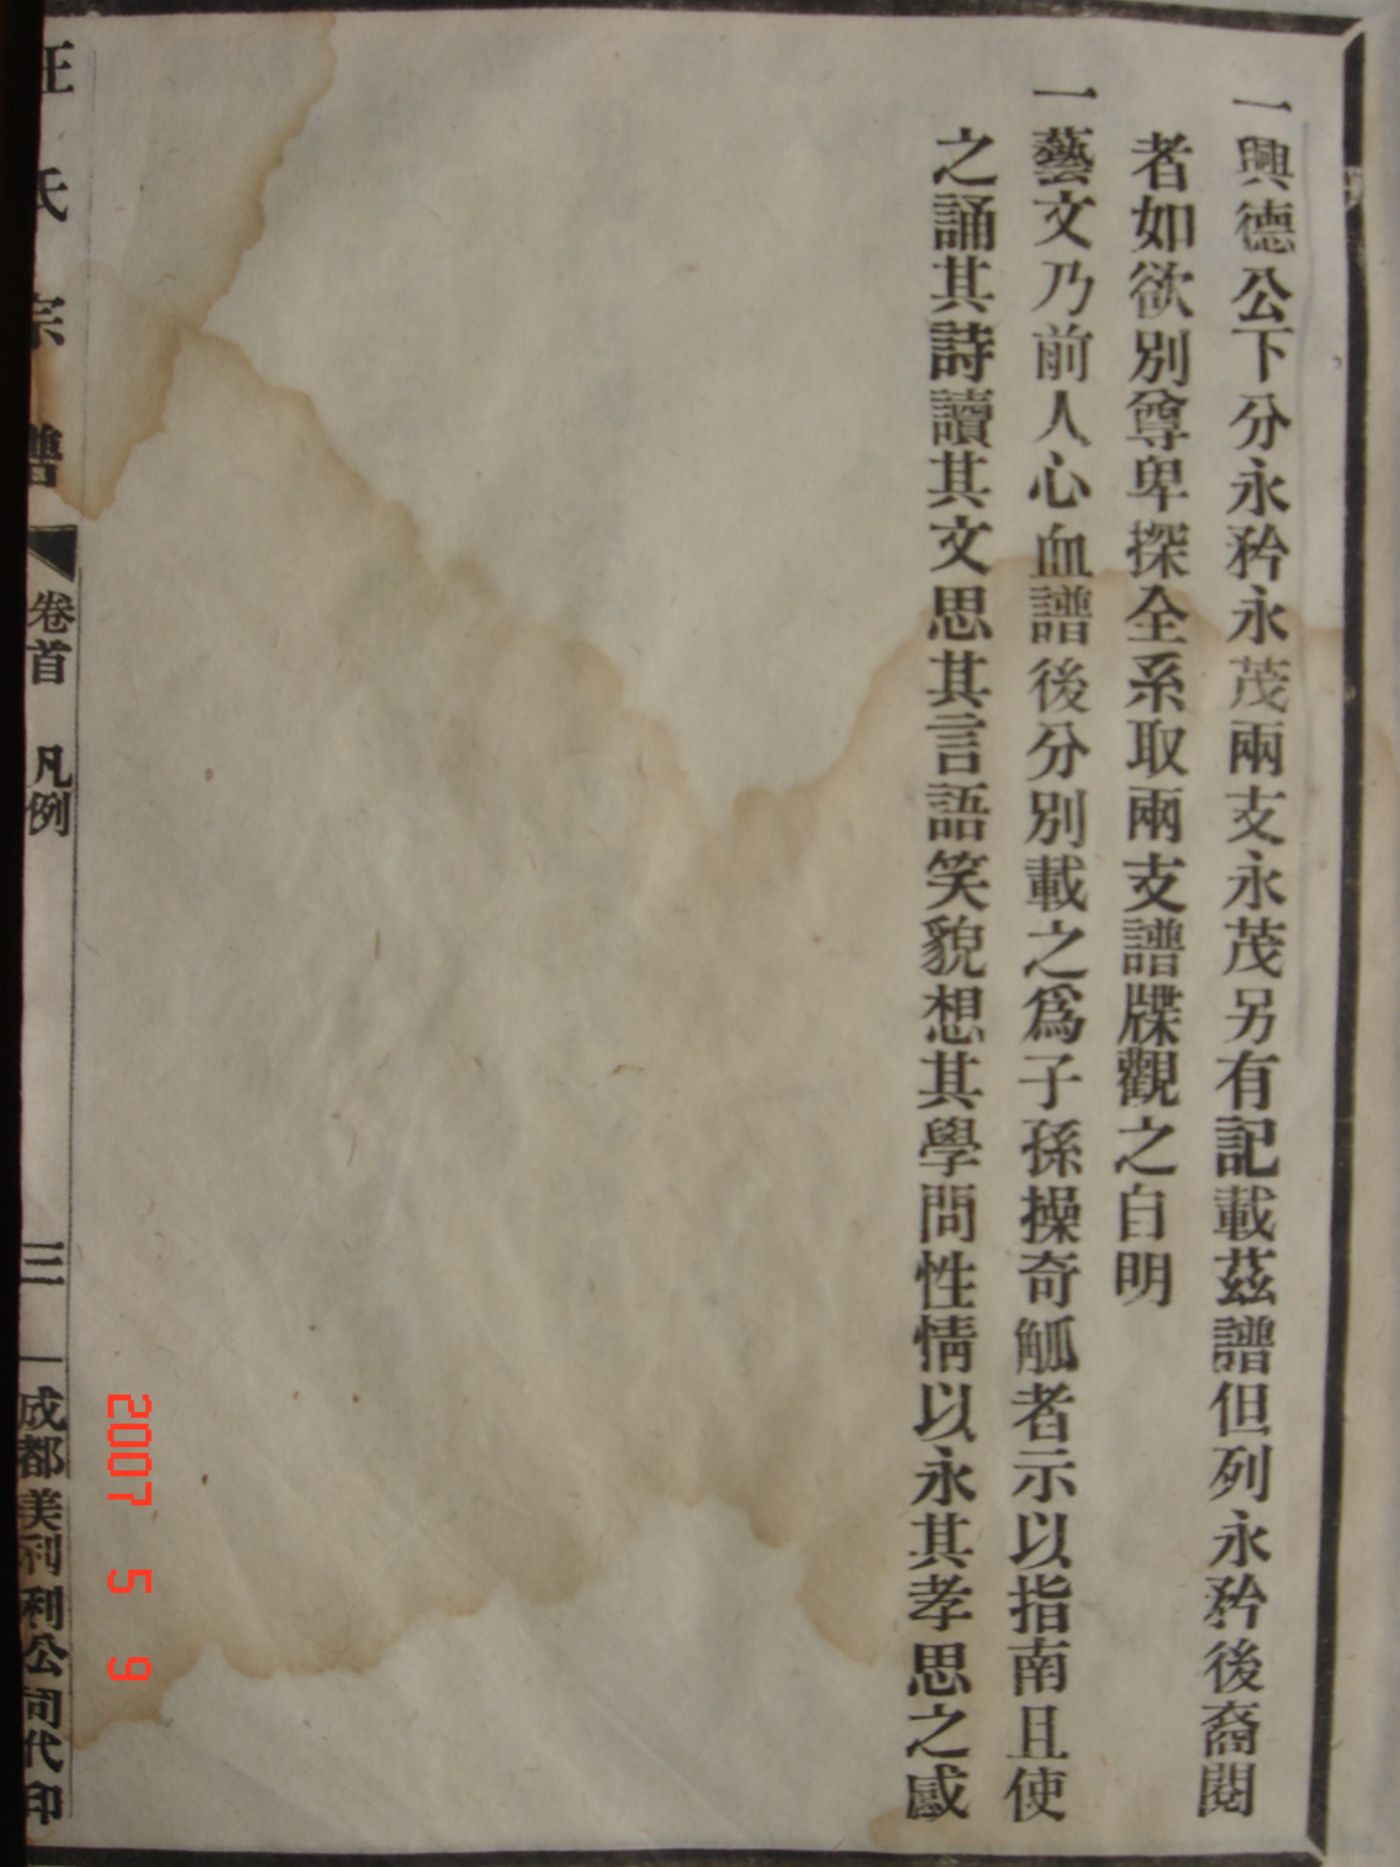 一興德公下分永矜永茂兩支永茂另有記載茲譜但列永矜後裔閱
者如欲別尊卑探全系取兩支譜牒觀之自明
一藝文乃前人心血譜後分別載之爲子孫操奇觚者示以指南且使
之誦其詩讀其文思其言語笑貌想其學問性情以永其孝思之感
汪氏宗譜
卷首 凡例
三
成都美利利公司代印
2007 5 9